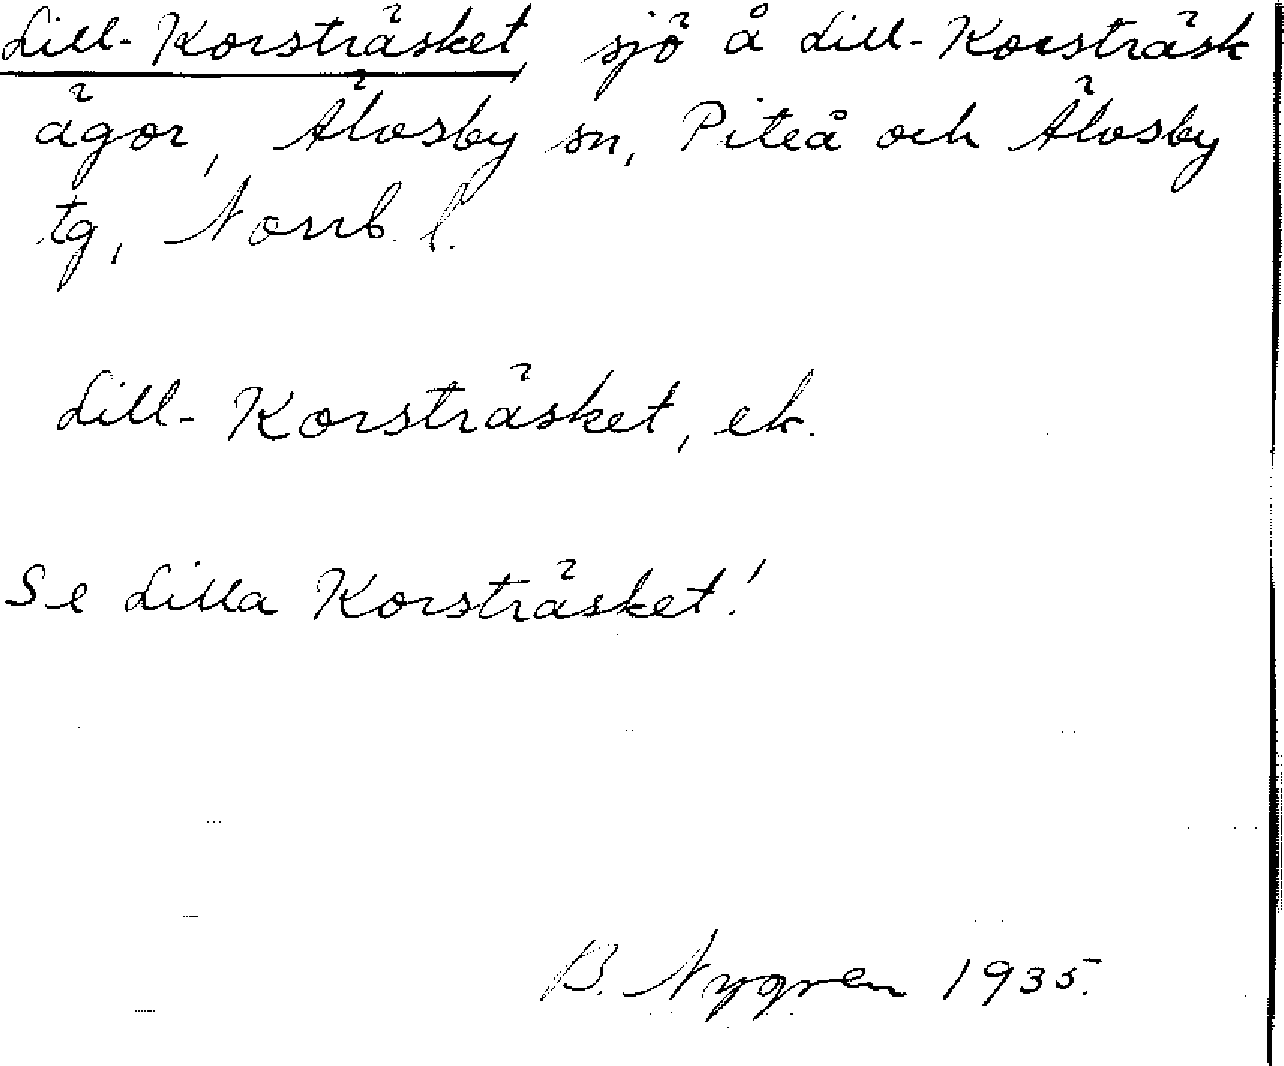 Lill-Korsträsket, sjö å Lill-Korsträsk
ägor, Älvsby sn, Piteå och Älvsby
tg, Norrb. l.
Lill-Korsträsket, ek.
Se Lilla Korsträsket!
B. Nygren 1935.